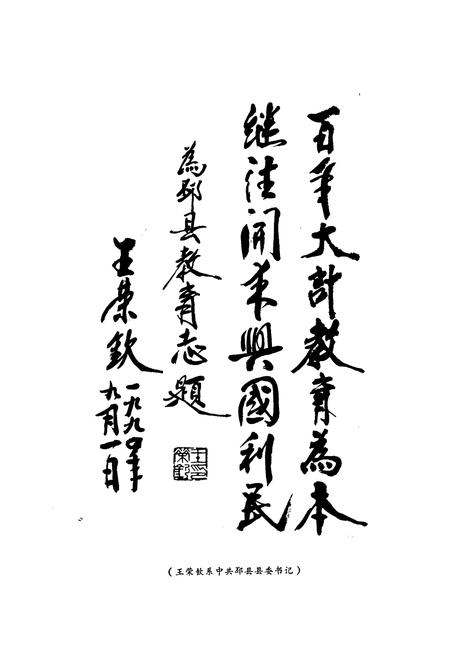 百年大計教育為本
继往開来興國利民
為郏县教育志題
王荣钦
一九九〇年
九月一日
(王荣钦系中共郏县县委书记)